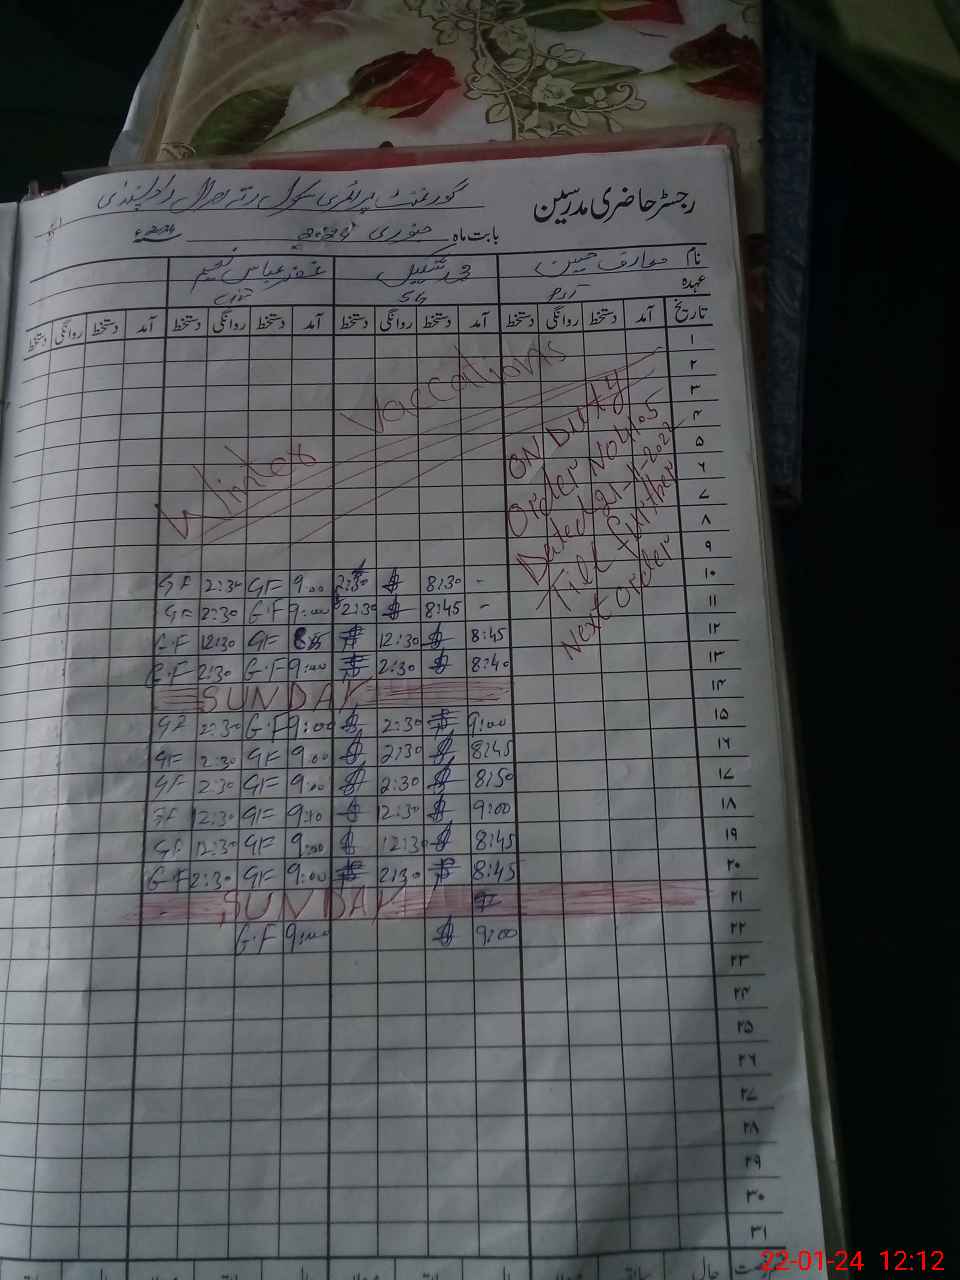 رجسٹر حاضری مدرسین گورنمنٹ پرائمری سکول راولپنڈی
بابت ماہ جنوری 2024
نام معارف حسین محمد شکیل غضنفر عباس نعیم
عہدہ
تاریخ آمد دستخط روانگی دستخط آمد دستخط روانگی دستخط آمد دستخط روانگی دستخط آمد دستخط روانگی دستخط
Winter Vaccations
ON Duty
Order No 4105
Dated 21-11-2022
Till further
Next Order
۱
۲
۳
۴
۵
۶
۷
۸
۹
۱۰ - 8:30 2:30 9:00 GF 2:30 GF
۱۱ - 8:45 2:30 9:00 G.F 2:30 GF
۱۲ 8:45 12:30 GF 12:30 G.F
۱۳ 8:40 2:30 9:00 G.F 2:30 G.F
۱۴ SUNDAY
۱۵ 9:00 2:30 9:00 G.F 2:30 GF
۱۶ 8:45 2:30 9:00 GF 2:30 GF
۱۷ 8:50 2:30 9:00 GF 2:30 GF
۱۸ 9:00 12:30 GF 12:30 GF
۱۹ 8:45 12:30 9:00 GF 12:30 GF
۲۰ 8:45 2:30 9:00 GF 2:30 G.F
۲۱ SUNDAY
۲۲ 9:00 9:00 G.F
۲۳
۲۴
۲۵
۲۶
۲۷
۲۸
۲۹
۳۰
۳۱
22-01-24 12:12